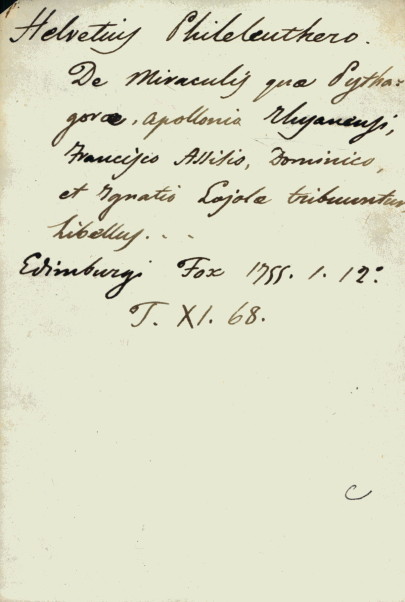 Helvetius Phileleuthero.
De Miraculis quæ Pytha-
goræ, Apollonio Thyanensi,
Francisco Assisio, Dominico,
et Ignatio Lojolæ tribuuntur
libellus. . .
Edimburgi Fox 1755. 1. 12º
T. XI. 68.
C